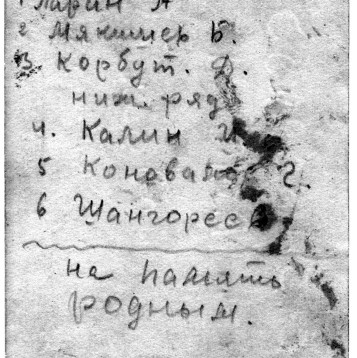 1 Ларин А
2 Мякишев Б.
3. Корбут. Д.
ниж. ряд
4. Калин И
5 Коновалов Г.
6 Шангореев
на память
родным.